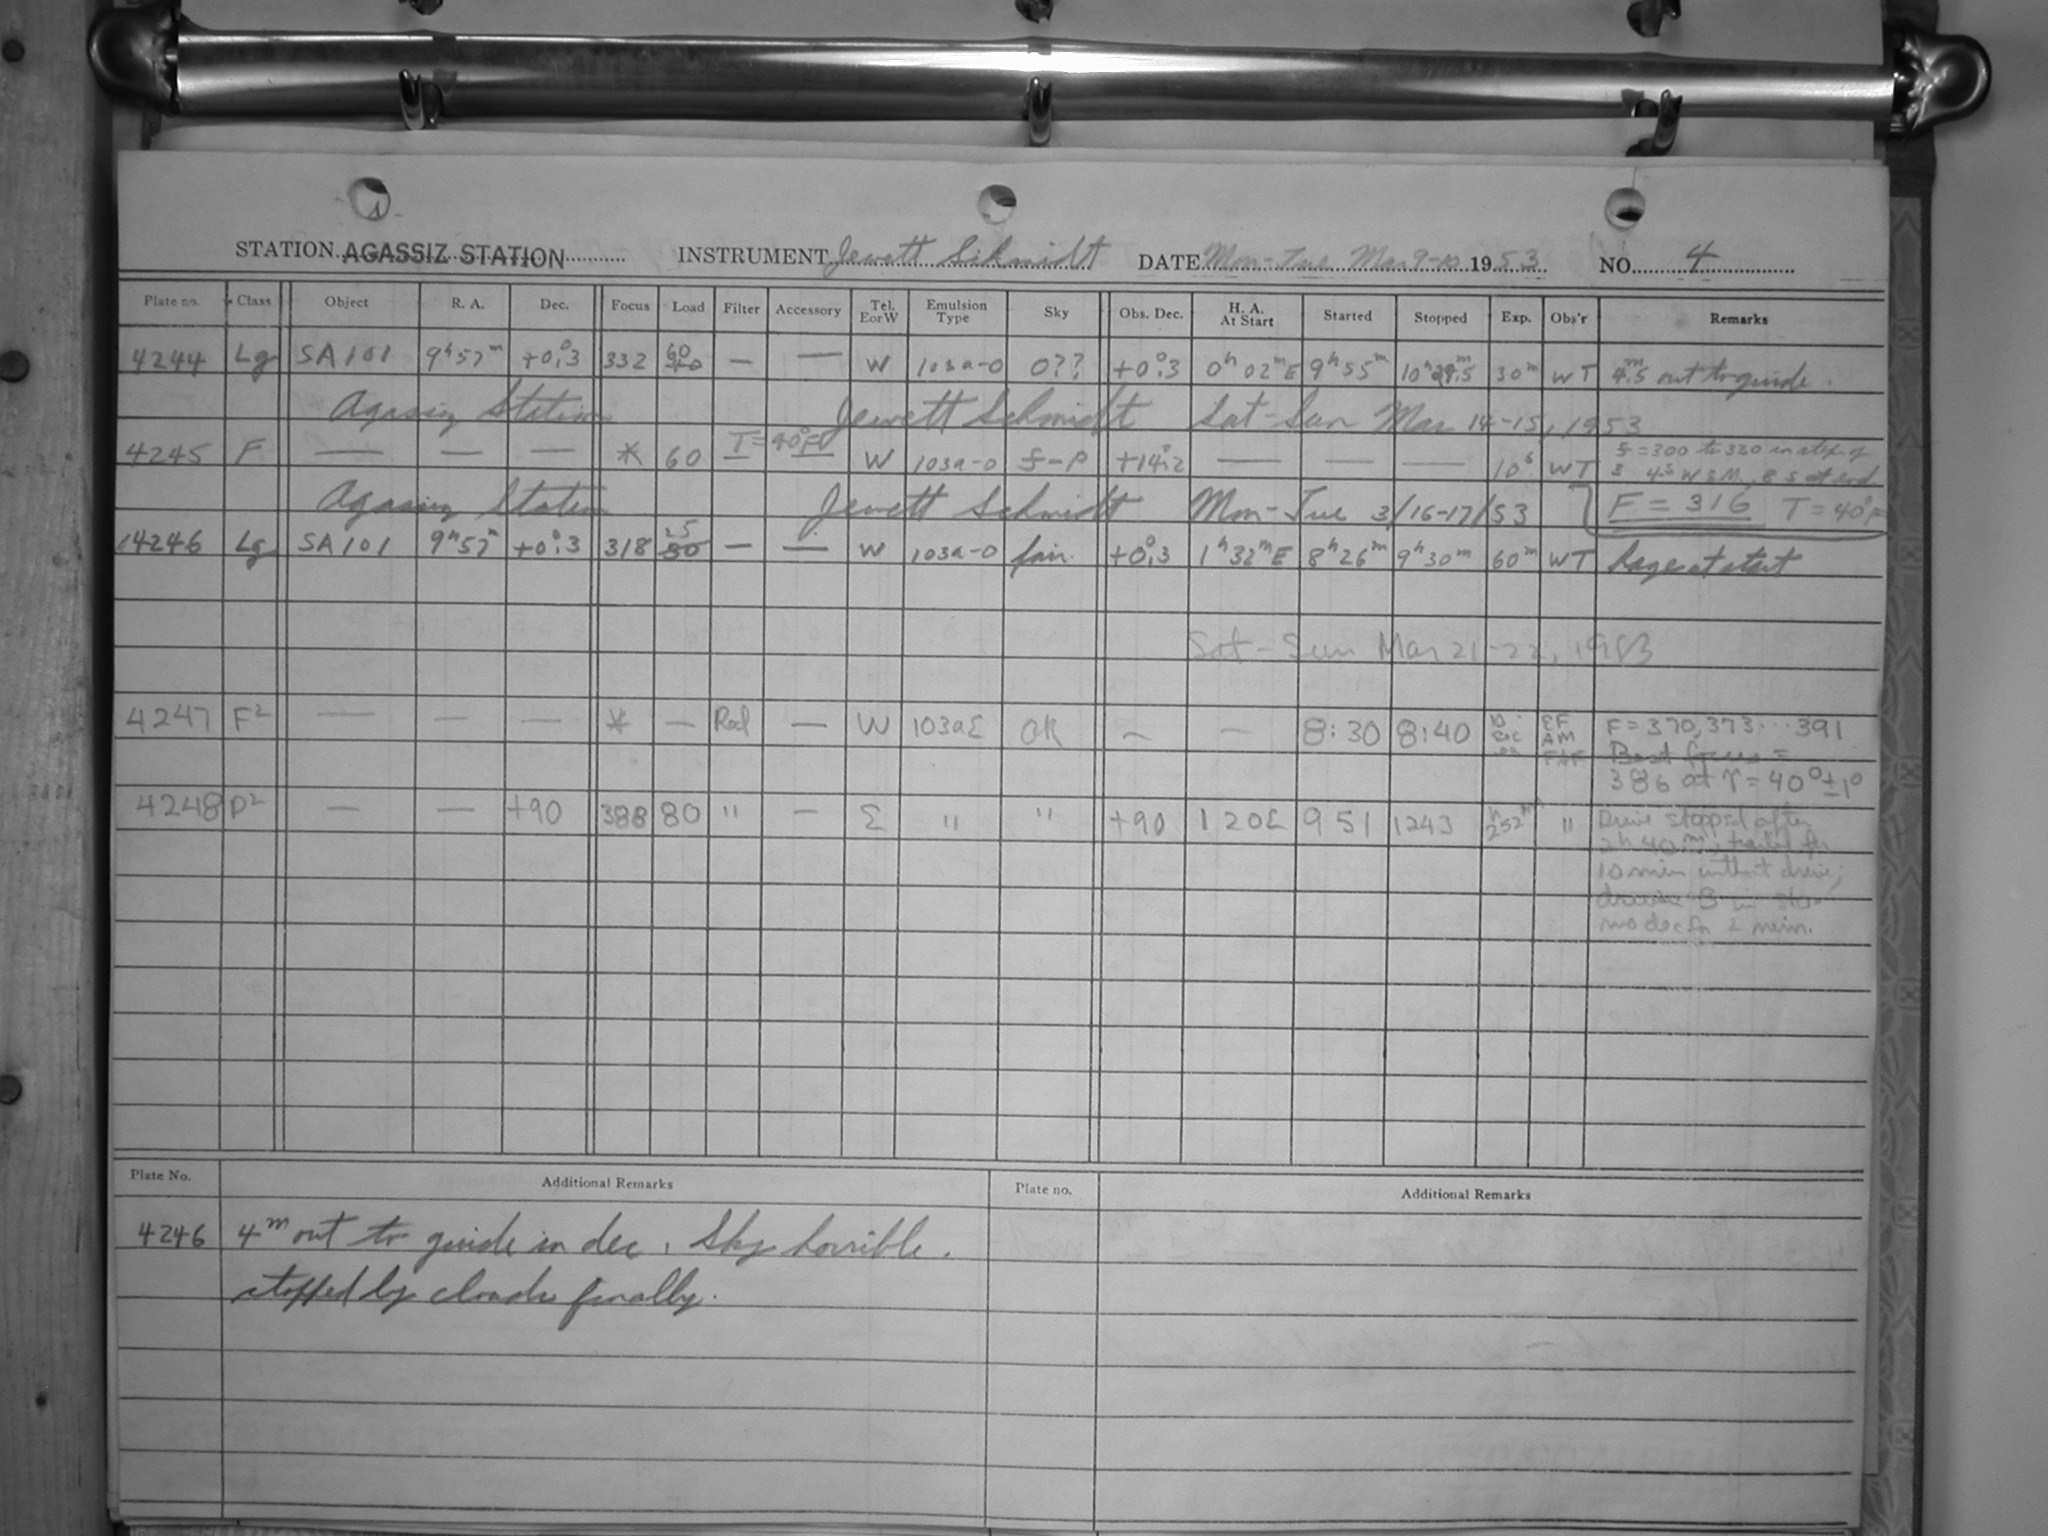 STATION AGASSIZ STATION INSTRUMENT Jewett Schmidt DATE Mon-Tue Mar 9-10 1953 NO. 4
Plate no. Class Object R. A. Dec. Focus Load Filter Accessory Tel. E or W Emulsion Type Sky Obs. Dec. H. A. At Start Started Stopped Exp. Obs'r Remarks
4244 Lg SA101 9h57m +0°.3 332 60 — — W 103a-O 0?? +0°.3 0h02mE 9h55m 10h29.5m 30m WT 4m.5 out to guide.
Agassiz Station Jewett Schmidt Sat-Sun Mar 14-15, 1953
4245 F — — — * 60 T=40°F W 103a-O f-p +14°.2 — — — 10s WT f=300 to 330 in steps of 3 4s W S M, 8 s at end
Agassiz Station Jewett Schmidt Mon-Tue 3/16-17/53 F = 316 T=40°F
14246 Lg SA101 9h57m +0°.3 318 25 — — W 103a-O fair. +0°.3 1h32mE 8h26m 9h30m 60m WT Haze at start
Sat-Sun Mar 21-22, 1953
4247 F2 — — — * — Red — W 103aE OK — — 8:30 8:40 10 sec ea EF AM F=370,373...391
Best focus =
386 at T=40°±1°
4248 P2 — — +90 388 80 " — E " " +90 1 20E 9 51 1243 2h52m " Drive stopped after
2h 40m; trailed for
10 min without drive;
mo dec for 2 min.
Plate No. Additional Remarks Plate no. Additional Remarks
4246 4m out to guide in dec. Sky horrible.
stopped by clouds finally.